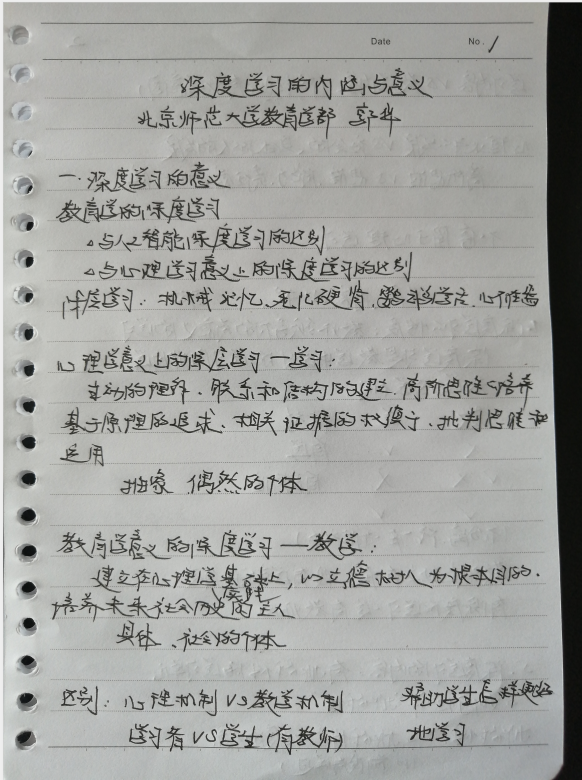 Date No. 1
深度学习的内涵与意义
北京师范大学教育学部 郭华
一.深度学习的意义
教育学的深度学习
△与人工智能深度学习的区别
△与心理学习意义上的深度学习的区别
浅层学习:机械记忆、死记硬背、
心理学意义上的深层学习—学习:
主动的理解、联系和结构的建立、高阶思维的培养
基于原理的追求、相关证据的权衡、批判思维和
运用
抽象 偶然的个体
教育学意义的深度学习——教学:
建立在心理学基础上,以立德树人为根本目的.
培养未来社会历史的主人
具体、社会的个体
区别:心理机制VS教学机制 帮助学生怎样更好
学习者VS学生(有教师) 地学习